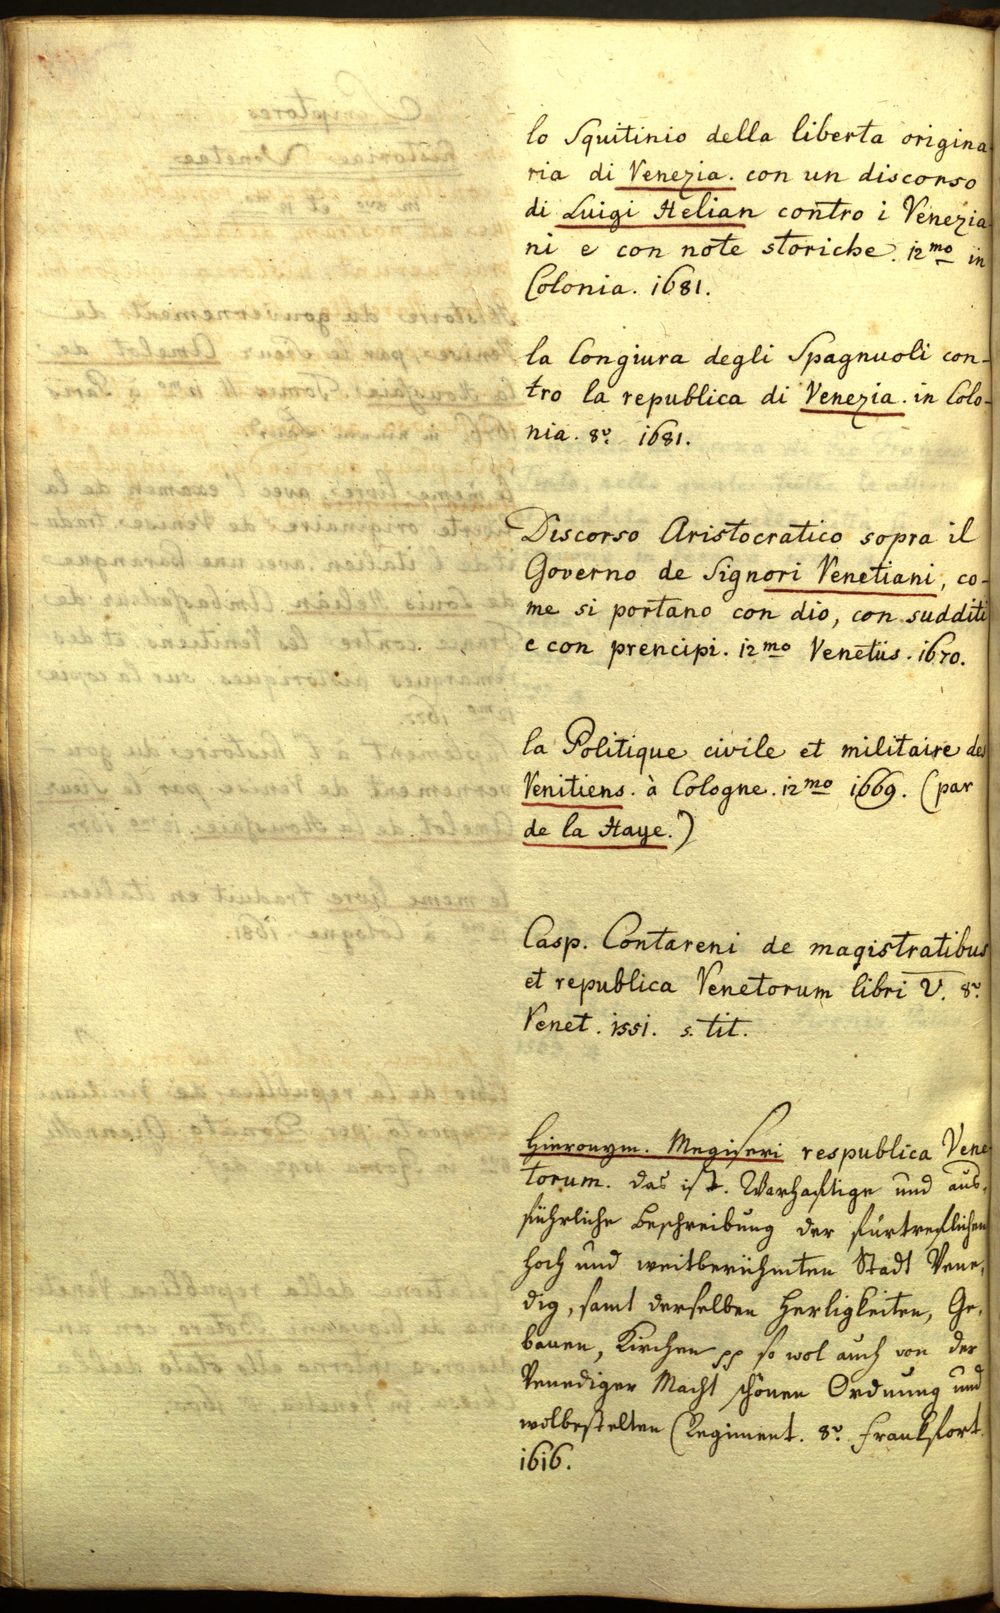 lo Squitinio della liberta origina
ria di Venezia. con un discorso
di Luigi Helian contro i Venezia
ni e con note storiche. 12mo in
Colonia. 1681.
la Congiura degli Spagnuoli con-
tro la republica di Venezia. in Colo-
nia. 8v. 1681.
Discorso Aristocratico sopra il
Governo de Signori Venetiani, co-
me si portano con dio, con sudditi
e con prencipi. 12mo Venetiis. 1670.
la Politique civile et militaire des
Venitiens. à Cologne. 12mo 1669. (par
de la Haye.)
Casp. Contareni de magistratibus
et republica Venetorum libri V. 8v.
Venet. 1551. s. tit.
Hieronym. Megiseri respublica Vene
torum. das ist. Warhaftige und aus,
führliche Beschreibung der fürtreflichen
hoch und weitberühmten Stadt Vene,
dig, samt derselben Herligkeiten, Ge,
bäuen, Kirchen pp so wol auch von der
Venediger Macht schönen Ordnung und
wolbestelten Regiment. 8v. Frankfort.
1616.